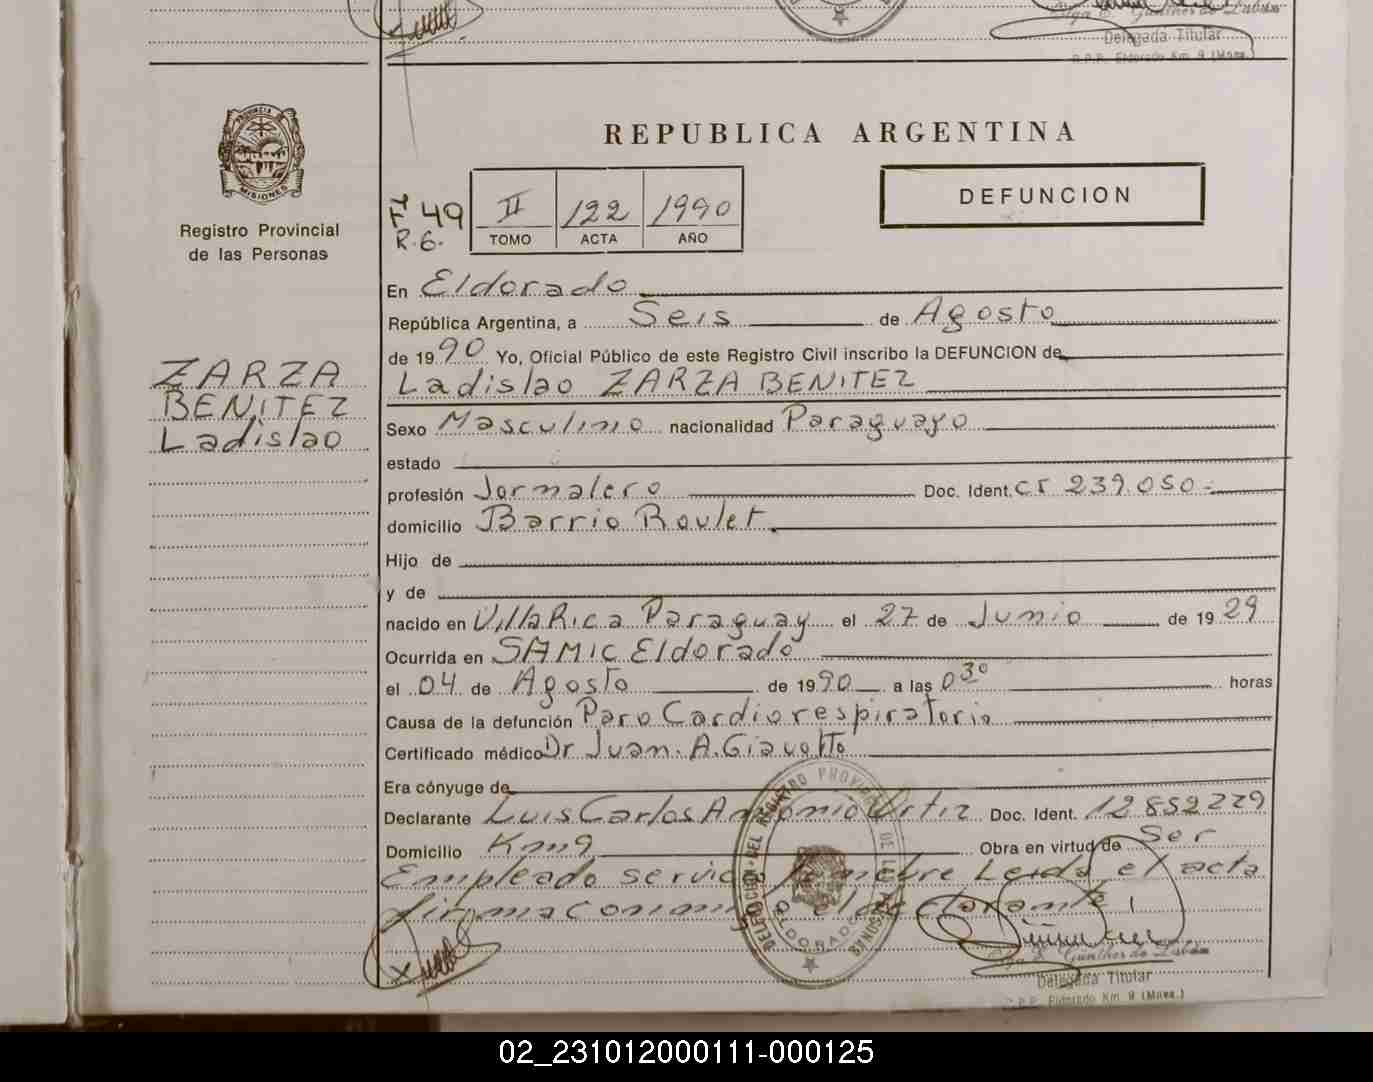 Delegada Titular
R.P.P. Eldorado Km. 9 (Mnes.)
PROVINCIA DE
MISIONES
Registro Provincial
de las Personas
ZARZA
BENITEZ
Ladislao
REPUBLICA ARGENTINA
DEFUNCION
F 49
R.G.
II 122 1990
TOMO ACTA AÑO
En Eldorado
República Argentina, a Seis de Agosto
de 1990 Yo, Oficial Público de este Registro Civil inscribo la DEFUNCION de
Ladislao ZARZA BENITEZ
Sexo Masculino nacionalidad Paraguayo
estado
profesión Jornalero Doc. Ident. CI 239.050-
domicilio Barrio Roulet
Hijo de
y de
nacido en Villa Rica Paraguay el 27 de Junio de 1929
Ocurrida en SAMIC Eldorado
el 04 de Agosto de 1990 a las 0 30 horas
Causa de la defunción Paro Cardiorespiratorio
Certificado médico Dr Juan. A. Giavotto
Era cónyuge de
Declarante Luis Carlos Antonio Ortiz Doc. Ident. 12852229
Domicilio Km 9 Obra en virtud de Ser
Empleado servicio funebre Leida el acta
firma conmigo el declarante
DELEGACION DEL REGISTRO PROVINCIAL DE LAS PERSONAS
ELDORADO
Delegada Titular
R.P.P. Eldorado Km. 9 (Mnes.)
02_231012000111-000125